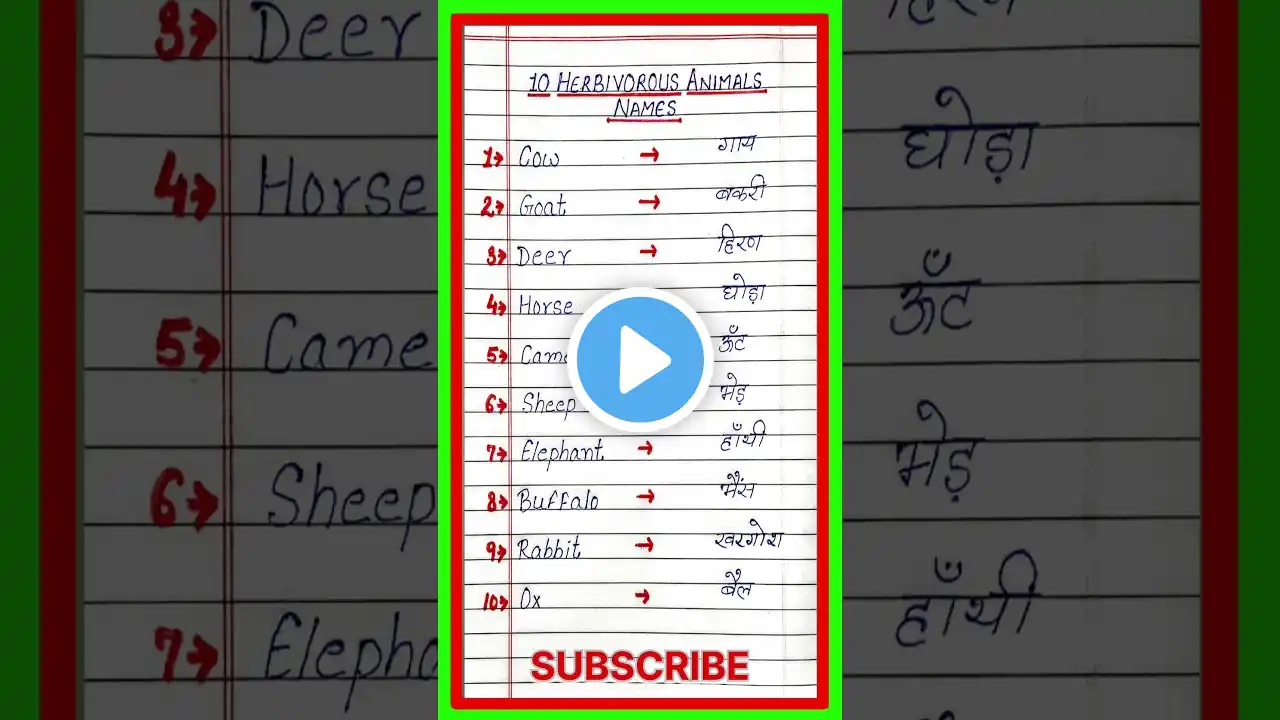 10 HERBIVOROUS ANIMALS
NAMES
1→ Cow → गाय
2→ Goat → बकरी
3→ Deer → हिरण
4→ Horse घोड़ा
5→ Came ऊँट
6→ Sheep भेड़
7→ Elephant → हाँथी
8→ Buffalo → भैंस
9→ Rabbit → खरगोश
10→ Ox → बैल
SUBSCRIBE
3→ Deer हिरण
4→ Horse घोड़ा
5→ Came ऊँट
6→ Sheep भेड़
7→ Elepha हाँथी